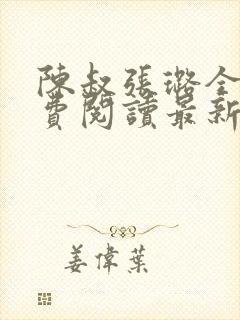 陳叔張璐全
費閱讀最新
姜偉葉